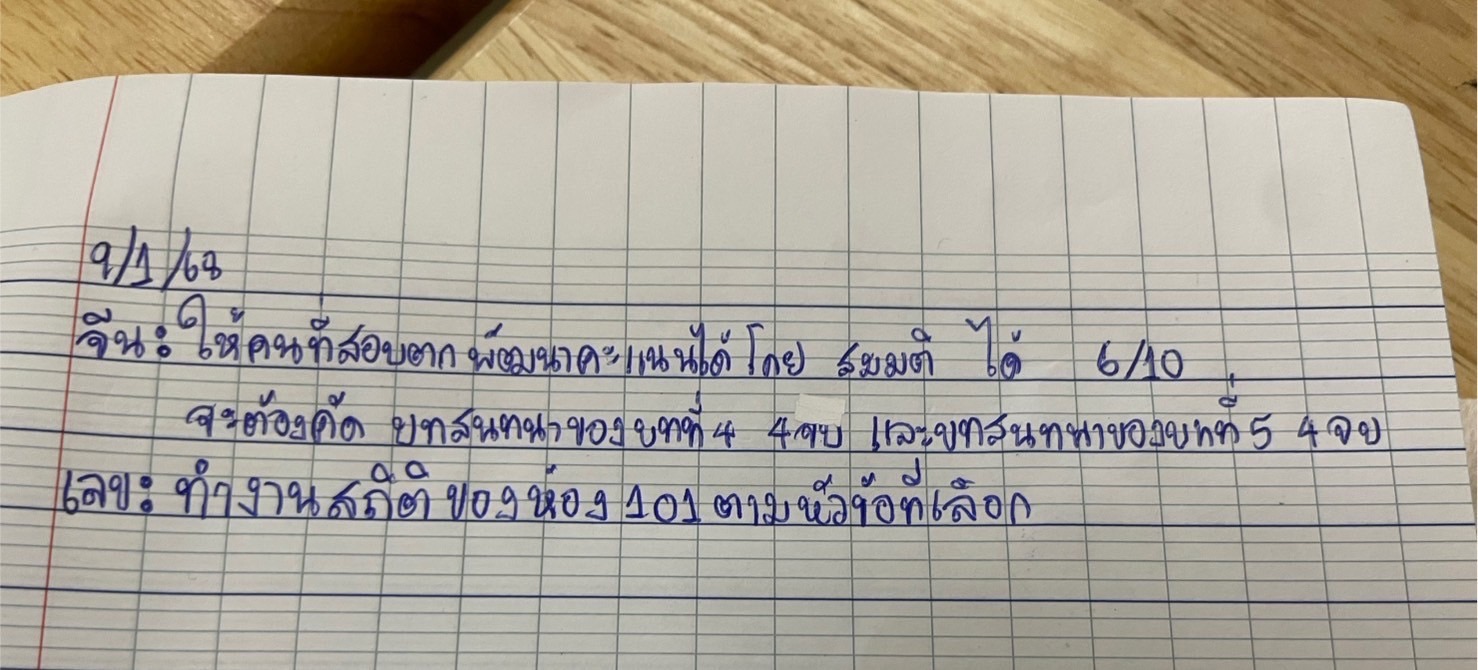 9/1/68
จีน: ให้คนที่สอบตก พัฒนาคะแนนได้ โดย สมมติ ได้ 6/10
จะต้องคัด บทสนทนาของบทที่ 4 4 จบ และบทสนทนาของบทที่ 5 4 จบ
เลข: ทำงานสถิติ ของห้อง 101 ตามหัวข้อที่เลือก